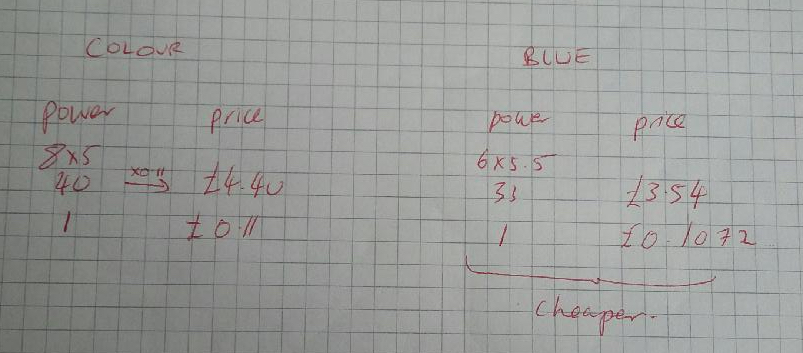 COLOUR
BLUE
power price
8x5
40 x0.11 → £4.40
1 £0.11
power price
6x5.5
33 £3.54
1 £0.1072
cheaper.